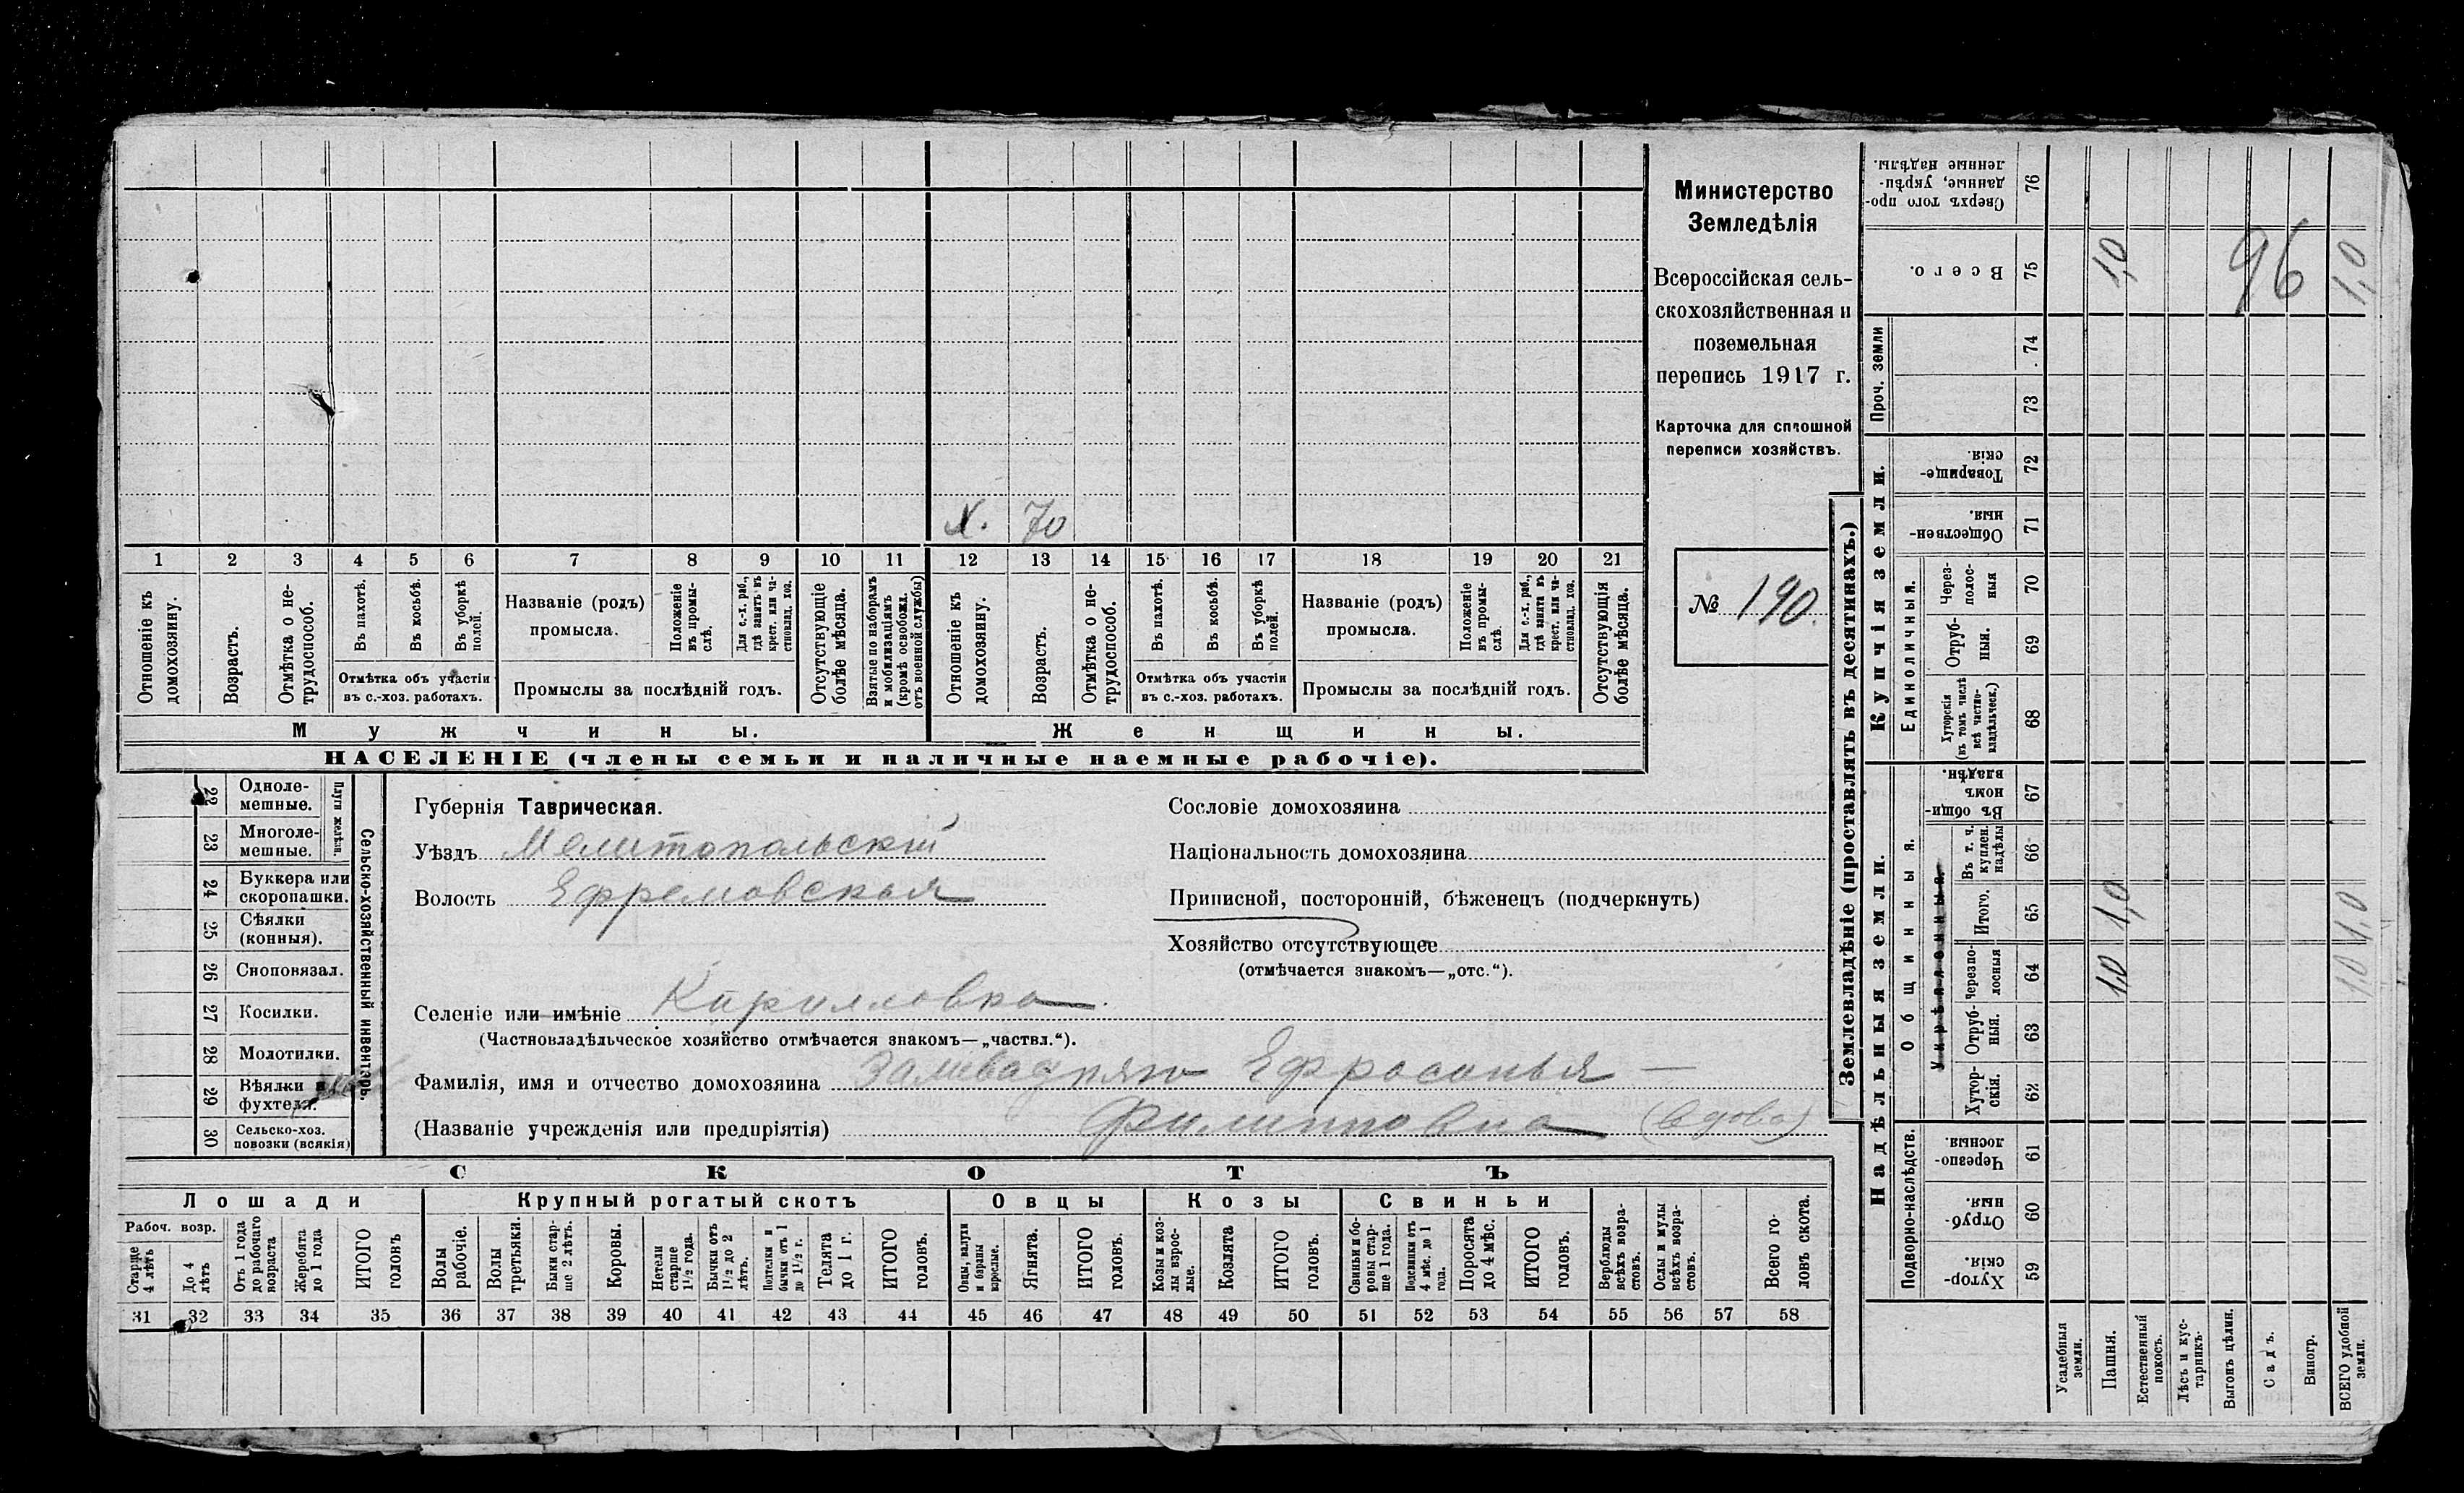 Х. 70
1 2 3 4 5 6 7 8 9 10 11 12 13 14 15 16 17 18 19 20 21
Отношеніе къ домохозяину.
Возрастъ.
Отмѣтка о нетрудоспособ.
Въ пахотѣ.
Въ косьбѣ.
Въ уборкѣ полей.
Отмѣтка объ участіи
въ с.-хоз. работахъ.
Названіе (родъ)
промысла.
Положеніе въ промыслѣ.
Для с.-х. раб., гдѣ занятъ въ крест. или частновлад. хоз.
Промыслы за послѣдній годъ.
Отсутствующіе болѣе мѣсяца.
Взятые по наборамъ и мобилизаціямъ (кромѣ освобожд. отъ военной службы)
Отношеніе къ домохозяину.
Возрастъ.
Отмѣтка о нетрудоспособ.
Въ пахотѣ.
Въ косьбѣ.
Въ уборкѣ полей.
Отмѣтка объ участіи
въ с.-хоз. работахъ.
Названіе (родъ)
промысла.
Положеніе въ промыслѣ.
Для с.-х. раб., гдѣ занята въ крест. или частновлад. хоз.
Промыслы за послѣдній годъ.
Отсутствующія болѣе мѣсяца.
Мужчины.
Женщины.
НАСЕЛЕНІЕ (члены семьи и наличные наемные рабочіе).
Министерство
Земледѣлія
Всероссійская сель-
скохозяйственная и
поземельная
перепись 1917 г.
Карточка для сплошной
переписи хозяйствъ.
№ 190.
22 Одноле-
мешные.
23 Многоле-
мешные.
Плуги желѣзн.
24 Буккера или
скоропашки.
25 Сѣялки
(конныя).
26 Сноповязал.
27 Косилки.
28 Молотилки.
29 Вѣялки и
фухтеля.
30 Сельско-хоз.
повозки (всякія)
Сельско-хозяйственный инвентарь.
Губернія Таврическая.
Уѣздъ Мелитопольскій
Волость Ефремовская
Селеніе или имѣніе Кирилловка.
(Частновладѣльческое хозяйство отмѣчается знакомъ—„частвл.“).
Фамилія, имя и отчество домохозяина Ефросинья —
(Названіе учрежденія или предпріятія) Филипповна (вдова)
Сословіе домохозяина
Національность домохозяина
Приписной, посторонній, бѣженецъ (подчеркнуть)
Хозяйство отсутствующее
(отмѣчается знакомъ—„отс.“).
СКОТЪ
Лошади
Крупный рогатый скотъ
Овцы
Козы
Свиньи
Рабоч. возр.
Старше 4 лѣтъ
До 4 лѣтъ
Отъ 1 года до рабочаго возраста
Жеребята до 1 года
ИТОГО головъ
Волы рабочіе.
Волы третьяки.
Быки старше 2 лѣтъ.
Коровы.
Нетели старше 1½ года.
Бычки отъ 1½ до 2 лѣтъ.
Подтелки и бычки отъ 1 до 1½ г.
Телята до 1 г.
ИТОГО головъ.
Овцы, валухи и бараны взрослые.
Ягнята.
ИТОГО головъ.
Козы и козлы взрослые.
Козлята
ИТОГО головъ.
Свиньи и боровы старше 1 года.
Подсвинки отъ 4 мѣс. до 1 года.
Поросята до 4 мѣс.
ИТОГО головъ.
Верблюды всѣхъ возрастовъ.
Ослы и мулы всѣхъ возрастовъ.
Всего головъ скота.
31 32 33 34 35 36 37 38 39 40 41 42 43 44 45 46 47 48 49 50 51 52 53 54 55 56 57 58
Землевладѣніе (проставлять въ десятинахъ.)
Надѣльныя земли.
Купчія земли.
Проч. земли
Подворно-наслѣдств.
Общинныя.
Укрѣпленныя.
Единоличныя.
Сверхъ того проданные, укрѣпленные надѣлы. 76
Всего. 75 1,0 96 1,0
74
73
Товарищескія. 72
Общественныя. 71
Черезполосныя 70
Отрубныя. 69
Хуторскія (въ томъ числѣ всѣ частновладѣльческ.) 68
Въ общиномъ владѣн. 67
Въ т. ч. куплен. надѣлы 66
Итого. 65 1,0 1,0
Черезполосныя 64 1,0 1,0
Отрубныя. 63
Хуторскія. 62
Черезполосныя. 61
Отрубныя. 60
Хуторскія. 59
Усадебныя земли.
Пашня.
Естественный покосъ.
Лѣсъ и кустарникъ.
Выгонъ цѣлин.
Садъ.
Виногр.
ВСЕГО удобной земли.